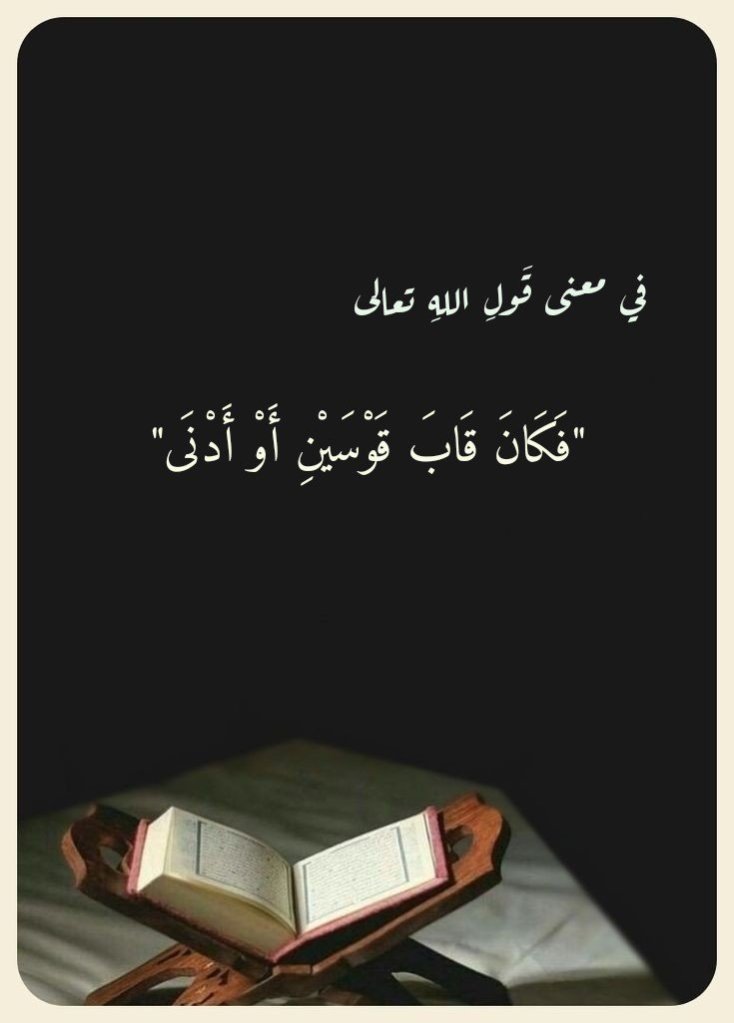 في معنى قَولِ اللهِ تعالى
"فَكَانَ قَابَ قَوْسَيْنِ أَوْ أَدْنَى"